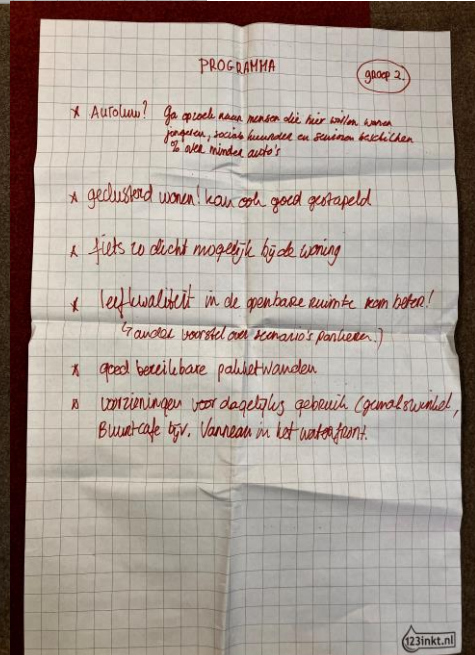 PROGRAMMA
groep 2.
* Autoluw? Ga opzoek naar mensen die hier willen wonen
jongeren, sociale huurder en senioren beschikken
% over minder auto's
* geclusterd wonen! kan ook goed gestapeld
* fiets zo dicht mogelijk bij de woning
* leefkwaliteit in de openbare ruimte kan beter!
↳ ander voorstel over scenario's parkeren.)
* goed bereikbare pakketwanden
* voorzieningen voor dagelijks gebruik (gemakswinkel,
Buurtcafe bijv. Vanneau in het waterfront.
123inkt.nl